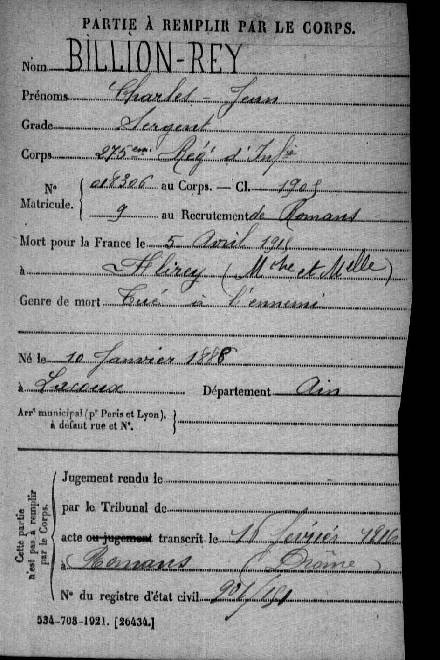 PARTIE À REMPLIR PAR LE CORPS.
Nom BILLION-REY
Prénoms Charles - Jean
Grade Sergent
Corps 275eme Régt d'Infie
N° Matricule. 018306 au Corps. — Cl. 1908
9 au Recrutement de Romans
Mort pour la France le 5 Avril 1915
à Flirey (Mthe et Melle)
Genre de mort Tué à l'ennemi
Né le 10 Janvier 1888
à Lacoux Département Ain
Arrt municipal (pr Paris et Lyon),
à défaut rue et N°.
Cette partie n'est pas à remplir par le Corps.
Jugement rendu le
par le Tribunal de
acte ou jugement transcrit le 16 février 1916
à Romans (Drôme)
N° du registre d'état civil
534-708-1921. [26434.]